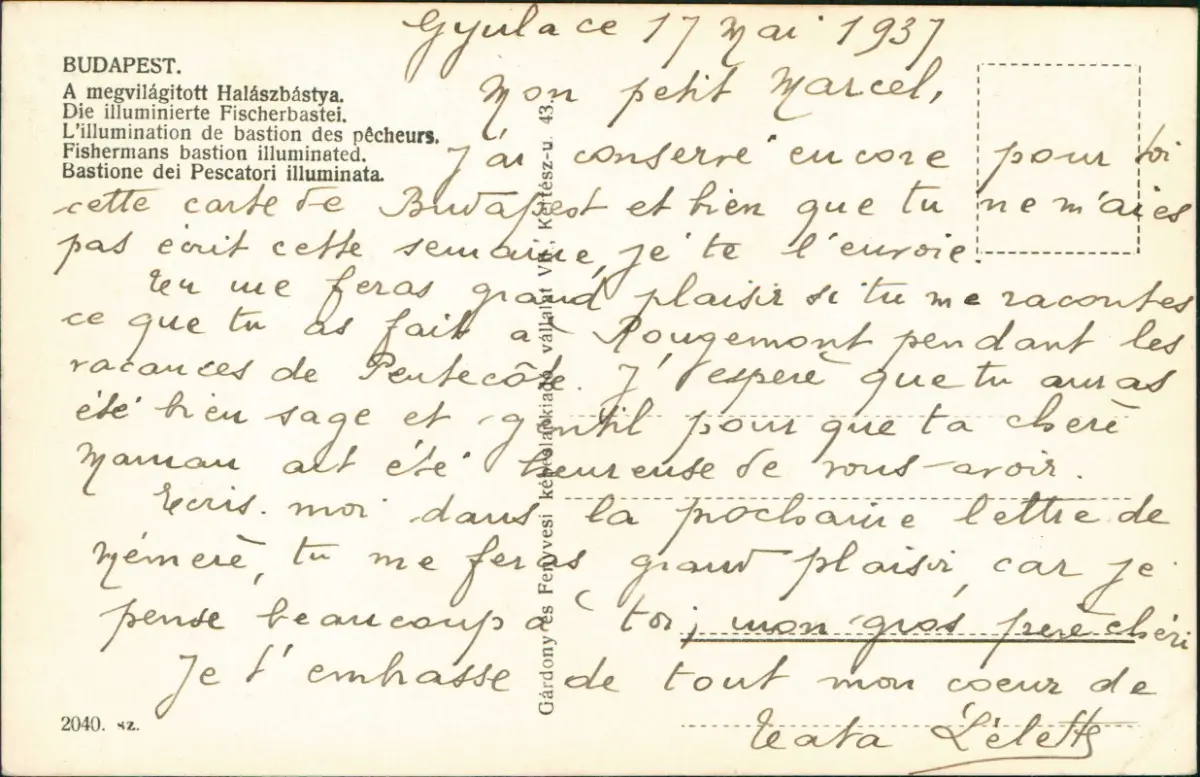 Gyula ce 17 Mai 1937
BUDAPEST.
A megvilágitott Halászbástya.
Die illuminierte Fischerbastei.
L'illumination de bastion des pêcheurs.
Fishermans bastion illuminated.
Bastione dei Pescatori illuminata.
Mon petit Marcel,
J'ai conservé encore pour toi
cette carte de Budapest et bien que tu ne m'aies
pas écrit cette semaine, je te l'envoie.
Tu me feras grand plaisir si tu me racontes
ce que tu as fait à Rougemont pendant les
vacances de Pentecôte. J'espère que tu auras
été bien sage et gentil pour que ta chère
Maman ait été heureuse de vous avoir.
Ecris-moi dans la prochaine lettre de
Mémère, tu me feras grand plaisir, car je
pense beaucoup à toi, mon gros père chéri
Je t'embrasse de tout mon coeur de
Tata
2040. sz.
Gárdony és Fenyvesi képeslapkiadó vállalat VII., Kertész-u. 43.